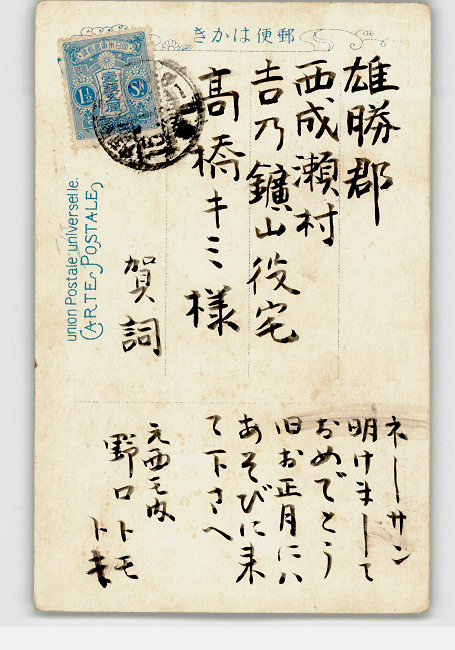 きかは便郵
雄勝郡
西成瀬村
吉乃鑛山役宅
高橋キミ様
賀詞
ネーサン
明けまして
おめでとう
旧お正月にハ
あそびに来
て下さへ
元西モ内
野口トモ
トキ
壹錢五厘
1½
Sn
union Postale universelle.
CARTE POSTALE